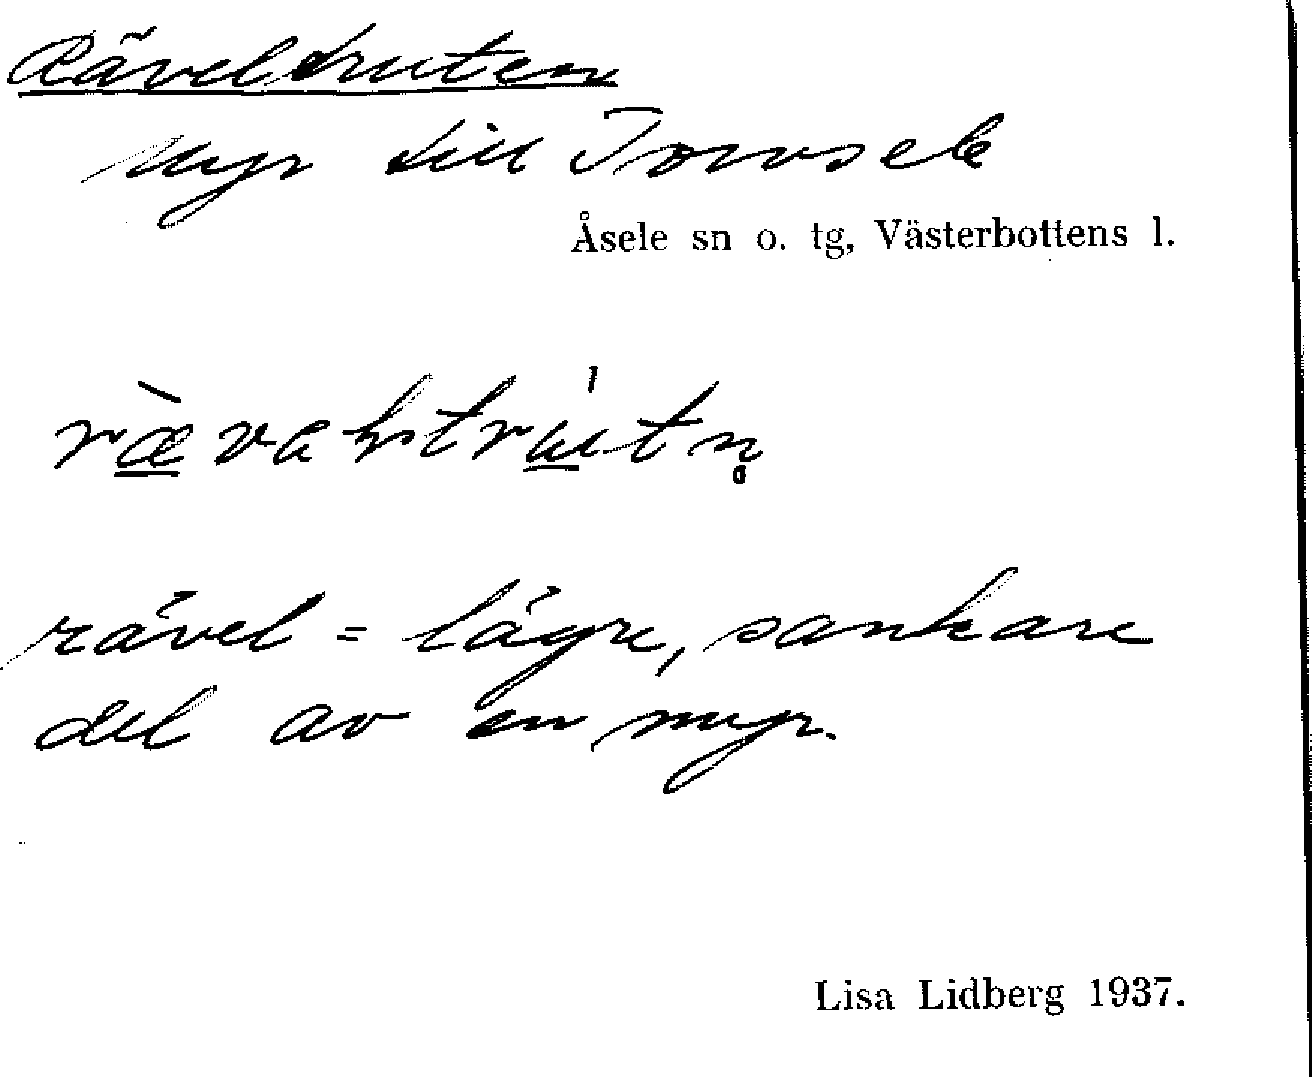 Räveltruten
Myr till Torvsele
Åsele sn o. tg, Västerbottens l.
rævaltrutn̥
rävel = lägre, sankare
del av en myr.
Lisa Lidberg 1937.